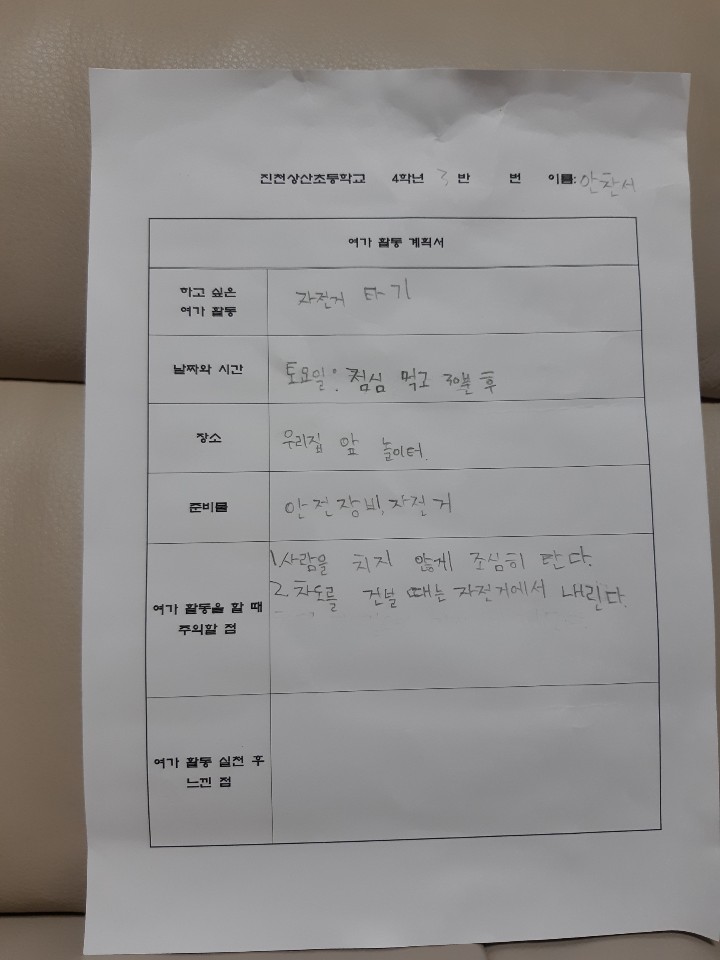 진천상산초등학교 4학년 3 반 번 이름: 안찬서
여가 활동 계획서
하고 싶은
여가 활동
자전거 타기
날짜와 시간
토요일: 점심 먹고 30분 후
장소
우리집 앞 놀이터.
준비물
안전장비, 자전거
여가 활동을 할 때
주의할 점
1. 사람을 치지 않게 조심히 탄다.
2. 차도를 건널 때는 자전거에서 내린다.
여가 활동 실천 후
느낀 점